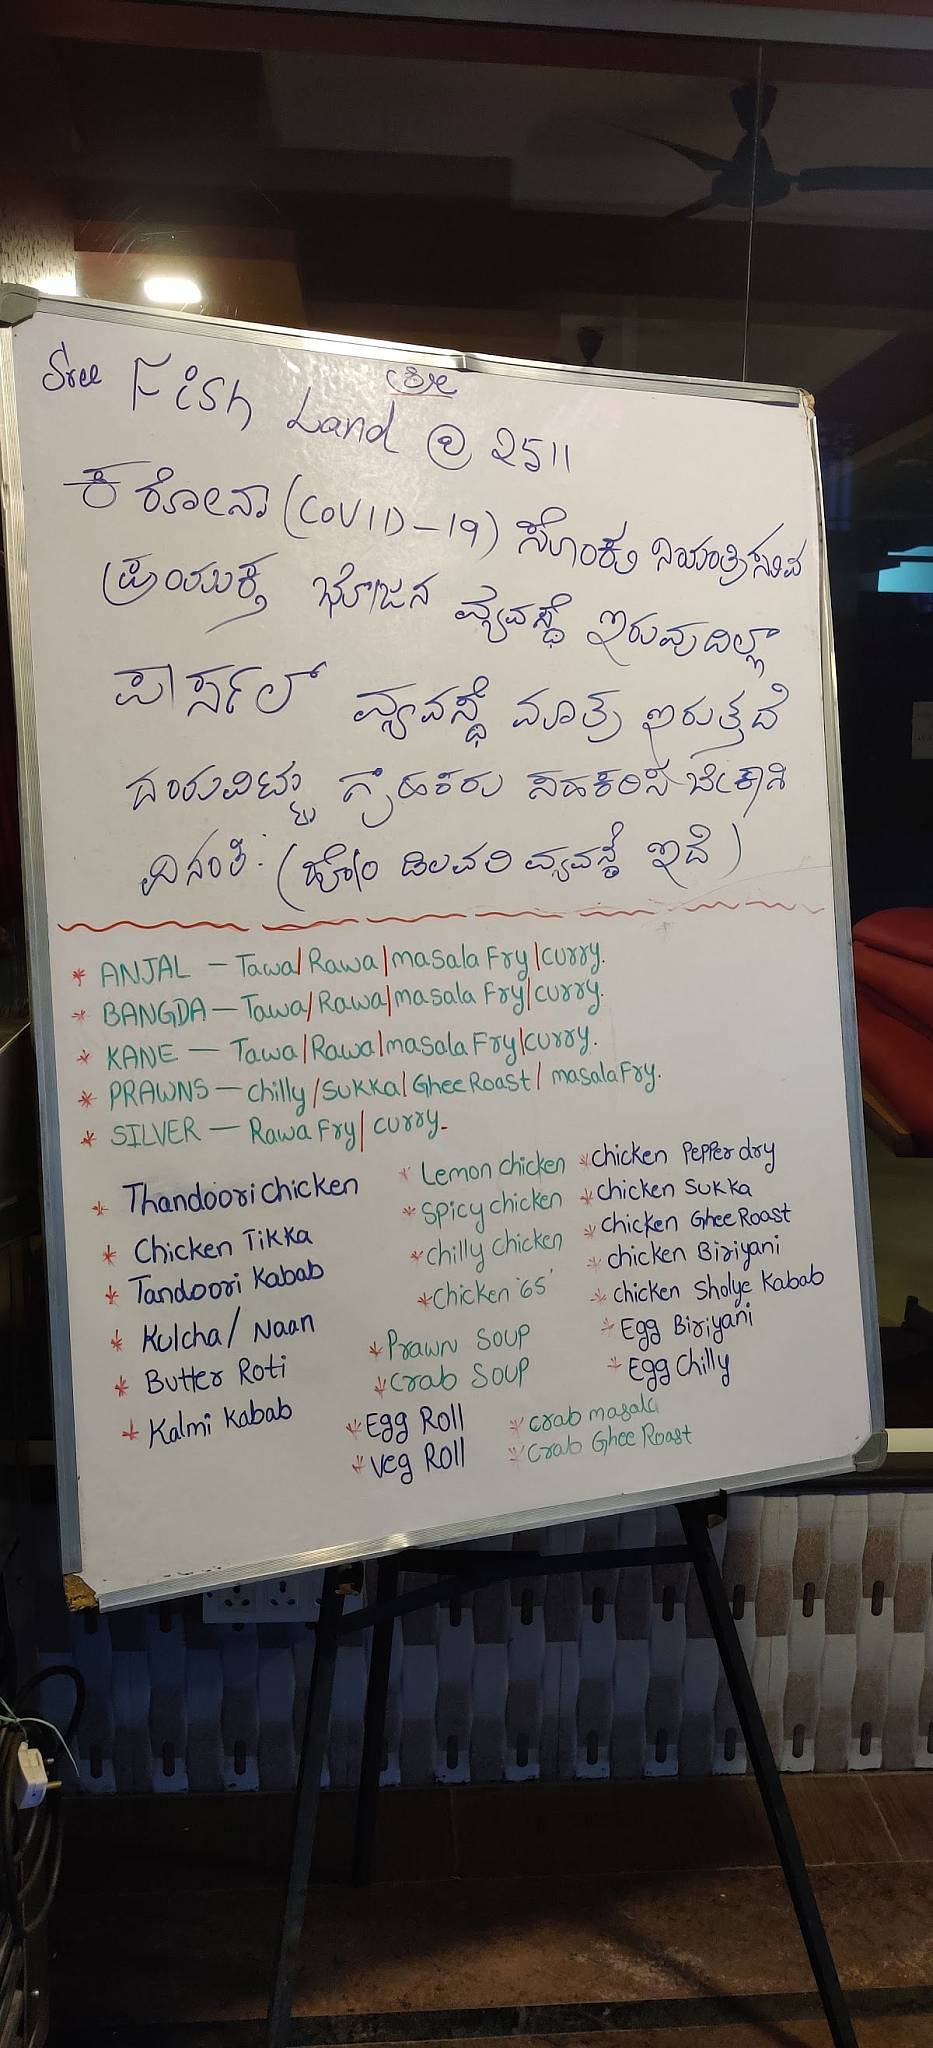 ಶ್ರೀ
Sree Fish Land @ 2511
ಕರೋನಾ (COVID-19) ಸೊಂಕು ನಿಯಂತ್ರಿಸುವ
ಪ್ರಯುಕ್ತ ಭೋಜನ ವ್ಯವಸ್ಥೆ ಇರುವುದಿಲ್ಲಾ
ಪಾರ್ಸಲ್ ವ್ಯವಸ್ಥೆ ಮಾತ್ರ ಇರುತ್ತದೆ
ದಯವಿಟ್ಟು ಗ್ರಹಕರು ಸಹಕರಿಸಬೇಕಾಗಿ
ವಿನಂತಿ. (ಹೋಂ ಡಿಲವರಿ ವ್ಯವಸ್ಥೆ ಇದೆ)
* ANJAL - Tawa/Rawa/masala Fry/curry.
* BANGDA - Tawa/Rawa/masala Fry/curry.
* KANE - Tawa/Rawa/masala Fry/curry.
* PRAWNS - chilly/Sukka/Ghee Roast/masala Fry.
* SILVER - Rawa Fry/curry.
* Thandoori chicken
* Chicken Tikka
* Tandoori Kabab
* Kulcha/Naan
* Butter Roti
* Kalmi Kabab
* Lemon chicken
* Spicy chicken
* chilly chicken
* chicken '65'
* Prawn Soup
* Crab Soup
* Egg Roll
* Veg Roll
* chicken Pepper dry
* chicken Sukka
* chicken Ghee Roast
* chicken Biriyani
* chicken Sholye Kabab
* Egg Biriyani
* Egg Chilly
* crab masala
* Crab Ghee Roast